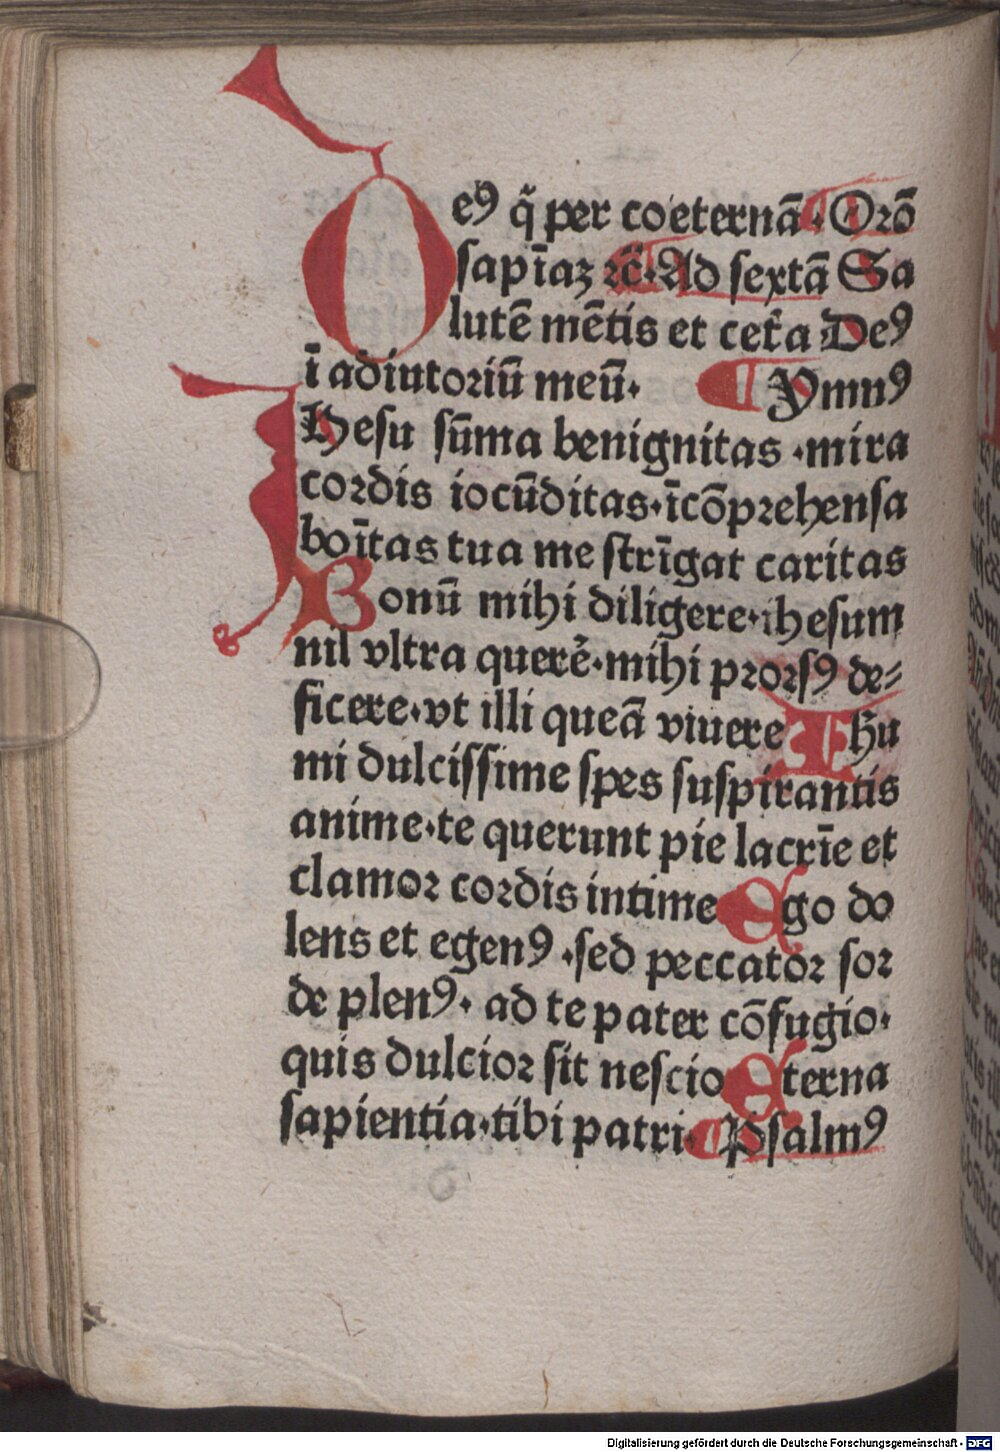 Deꝰ q̃ per coeternã. Orõ
sapīaʒ ꝛc̄. Ad sextã Sa
lutē mētis et cet̃a Deꝰ
ī adiutoriū meū. Ymnꝰ
IHesu sūma benignitas .mira
cordis iocūditas.īcōprehensa
boītas tua me strīgat caritas
Bonū mihi diligere.ihesum
nil vltra querē.mihi prorsꝰ de⸗
ficere.vt illi queã viuere Ihu
mi dulcissime spes suspirantis
anime.te querunt pie lacrīe et
clamor cordis intime Ego do
lens et egenꝰ .sed peccator sor
de plenꝰ. ad te pater cōfugio.
quis dulcior sit nescio Eterna
sapientia.tibi patri. Psalmꝰ
Digitalisierung gefördert durch die Deutsche Forschungsgemeinschaft - DFG